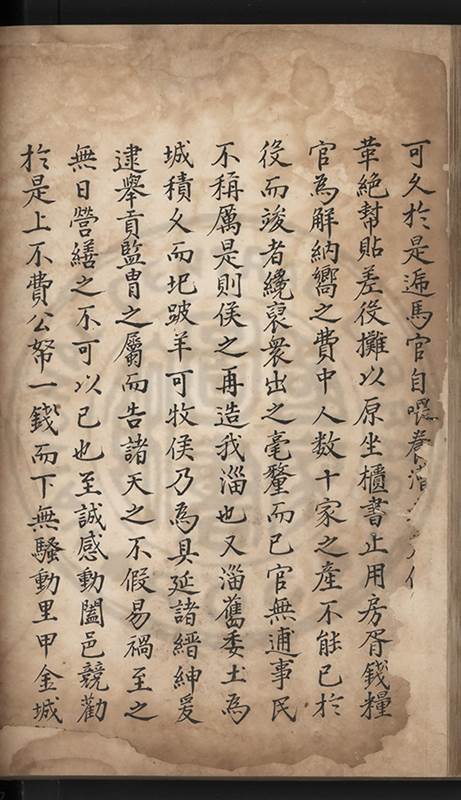 可久於是遞馬官自喂養
革絕幫貼差役攤以原坐櫃書止用房胥錢糧
官為解納嚮之費中人数十家之產不能已於
役而竣者纔裒衆出之毫釐而已官無逋事民
不稱厲是則侯之再造我淄也又淄舊委土為
城積久而圮跛羊可牧侯乃為具延諸縉紳爰
逮舉貢監胄之屬而告諸天之不假易禍至之
無日營繕之不可以已也至誠感動闔邑競勸
於是上不費公帑一錢而下無騷動里甲金城